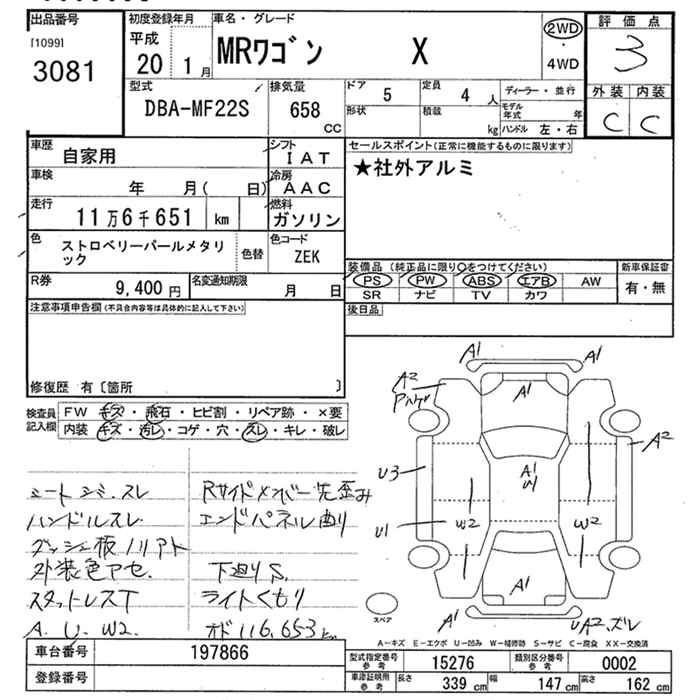 出品番号
[1099]
3081
初度登録年月
平成
20 1月
車名・グレード
MRワゴン X
2WD
・
4WD
評価点
3
外装 内装
C C
型式
DBA-MF22S
排気量
658
CC
ドア
5
定員
4 人
形状
積載
kg
ディーラー・並行
モデル
年式 年
ハンドル 左・右
車歴
自家用
シフト
IAT
車検
年 月( 日)
冷房
AAC
走行
11万6千651 km
燃料
ガソリン
色
ストロベリーパールメタリ
ック
色替
色コード
ZEK
R券
9,400 円
名変通知期限
月 日
セールスポイント(正常に機能するものに限ります)
★社外アルミ
装備品(純正品に限り○をつけてください)
PS PW ABS エアB AW
SR ナビ TV カワ
新車保証書
有・無
後日品
注意事項申告欄(不具合内容等は具体的に記入して下さい)
修復歴 有〔箇所 〕
検査員
記入欄
FW キズ・飛石・ヒビ割・リペア跡・×要
内装 キズ・汚レ・コゲ・穴・スレ・キレ・破レ
シートシミ.スレ
ハンドルスレ
ダッシュ板ノリアト
外装色アセ.
スタットレスT
A. U. W2.
Rサイドメンバー先歪み
エンドパネル曲り
下廻りS.
ライトくもり
オド116,653k
A1
A1
A2
アルゲ
A1
A2
U3
A1
W
U1
W2
W2
A1
A1
UA2.ズレ
スペア
A-キズ E-エクボ U-凹み W-補修跡 S-サビ C-腐食 XX-交換済
車台番号
197866
登録番号
型式指定番号
参考
15276
類別区分番号
参考
0002
車庫証明用
参考
長さ 339 cm
幅 147 cm
高さ 162 cm